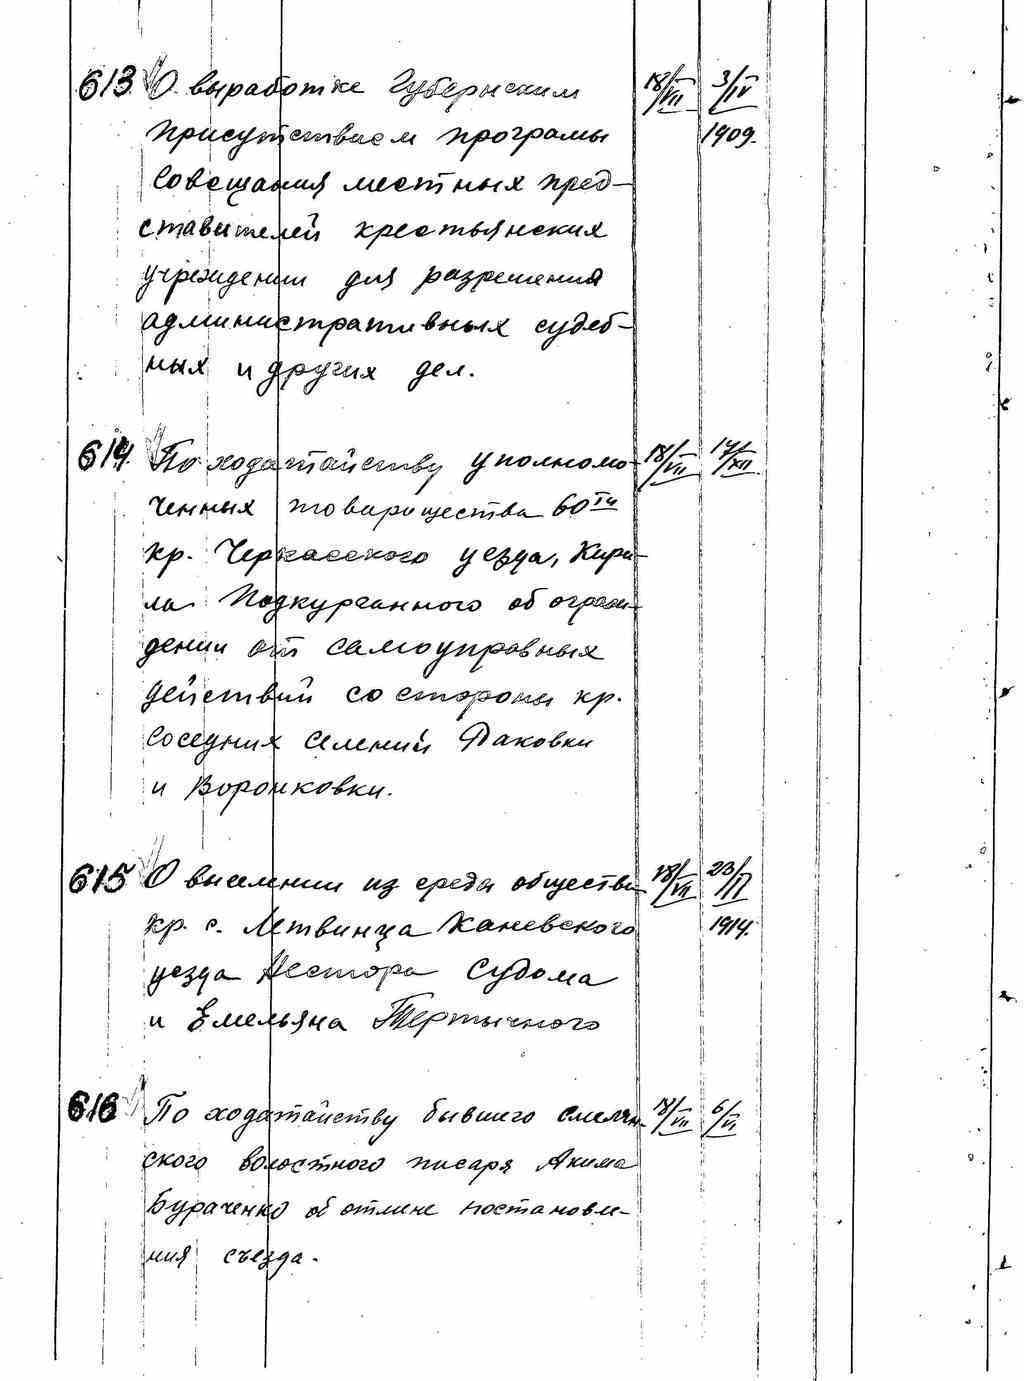 613 О выработке Губернским 18/VII 3/IV
присутствием програмы 1909.
совещания местных пред-
ставителей крестьянских
учреждении для разрешения
административных судеб-
ных и других дел.
614. По ходатайству уполномо- 18/VII 14/XII
ченных товарищества 60ти
кр. Черкасского уезда, Кири-
ла Подкурганного об ограж-
дении от самоуправных
действий со стороны кр.
соседних селений Даковки
и Воронковки.
615 О выселении из среды общества 18/VII 23/II
кр. с. Летвинца Каневского 1914.
уезда Нестора Судома
и Емельяна Тертычного
616 По ходатайству бывшего смелян- 18/VII 6/VI
ского волостного писаря Акима
Бураченко об отмене постановле-
ния съезда.